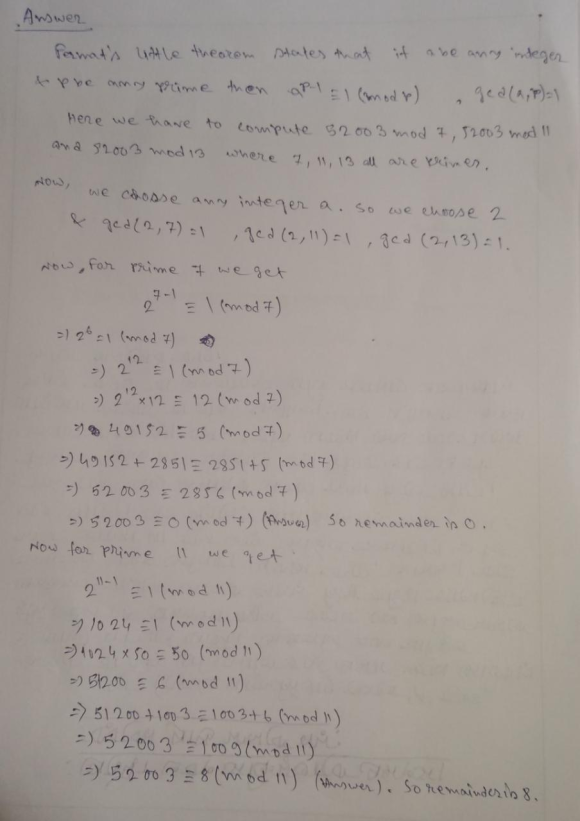 Answer
Fermat's little theorem states that if a be any integer
& p be any prime then a^p-1 ≡ 1 (mod p) , gcd(a,p)=1
Here we have to compute 52003 mod 7, 52003 mod 11
and 52003 mod 13 where 7, 11, 13 all are primes.
Now, we choose any integer a. so we choose 2
& gcd(2,7)=1 , gcd(2,11)=1 , gcd(2,13)=1.
Now, for prime 7 we get
2^7-1 ≡ 1 (mod 7)
=) 2^6 ≡ 1 (mod 7)
=) 2^12 ≡ 1 (mod 7)
=) 2^12 × 12 ≡ 12 (mod 7)
=) 49152 ≡ 5 (mod 7)
=) 49152 + 2851 ≡ 2851 + 5 (mod 7)
=) 52003 ≡ 2856 (mod 7)
=) 52003 ≡ 0 (mod 7) (Answer) So remainder is 0.
Now for prime 11 we get
2^11-1 ≡ 1 (mod 11)
=) 1024 ≡ 1 (mod 11)
=) 1024 × 50 ≡ 50 (mod 11)
=) 51200 ≡ 6 (mod 11)
=) 51200 + 1003 ≡ 1003 + 6 (mod 11)
=) 52003 ≡ 1009 (mod 11)
=) 52003 ≡ 8 (mod 11) (Answer). So remainder is 8.